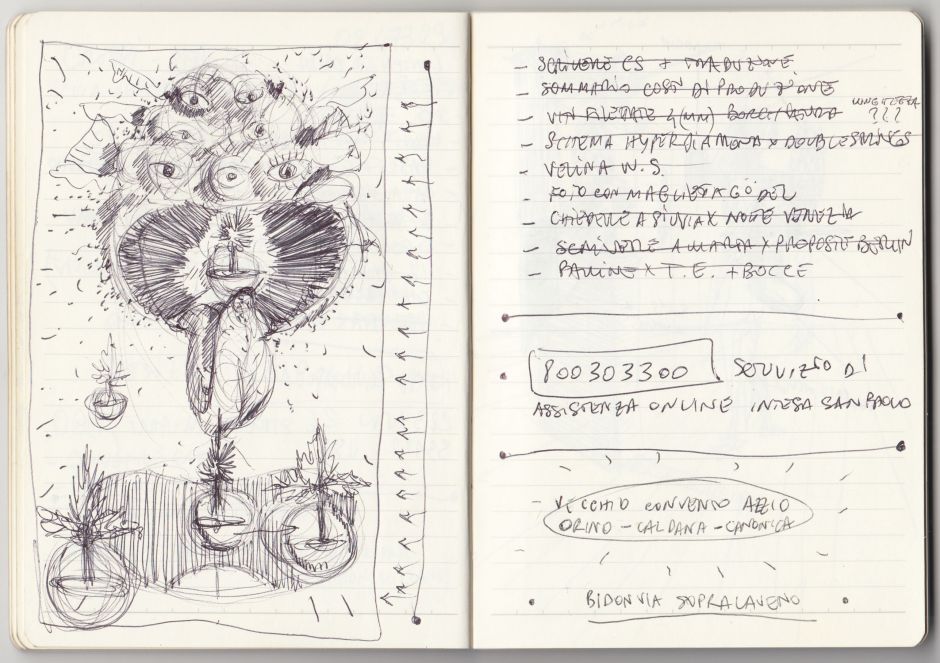 - SCRIVERE CS + TRADUZIONE
- SOMMARIO COSTI DI PRODUZIONE
- VITI FILETTATE 4 (MM)
???
- SCHEMA HYPERDIAMOND X DOUBLE
- VELINA W.S.
- FOTO CON MAGLIETTA GÖDEL
- CHIEDERE A SILVIA X NOTE VENEZIA
- SCRIVERE A MARTA X PROPOSTE BERLIN
- X T.E. + BOCCE
800303300 SERVIZIO DI
ASSISTENZA ONLINE INTESA SAN PAOLO
- VECCHIO CONVENTO AZZIO
ORINO - CALDANA - CANONICA
BIDONVIA SOPRA LAVENO